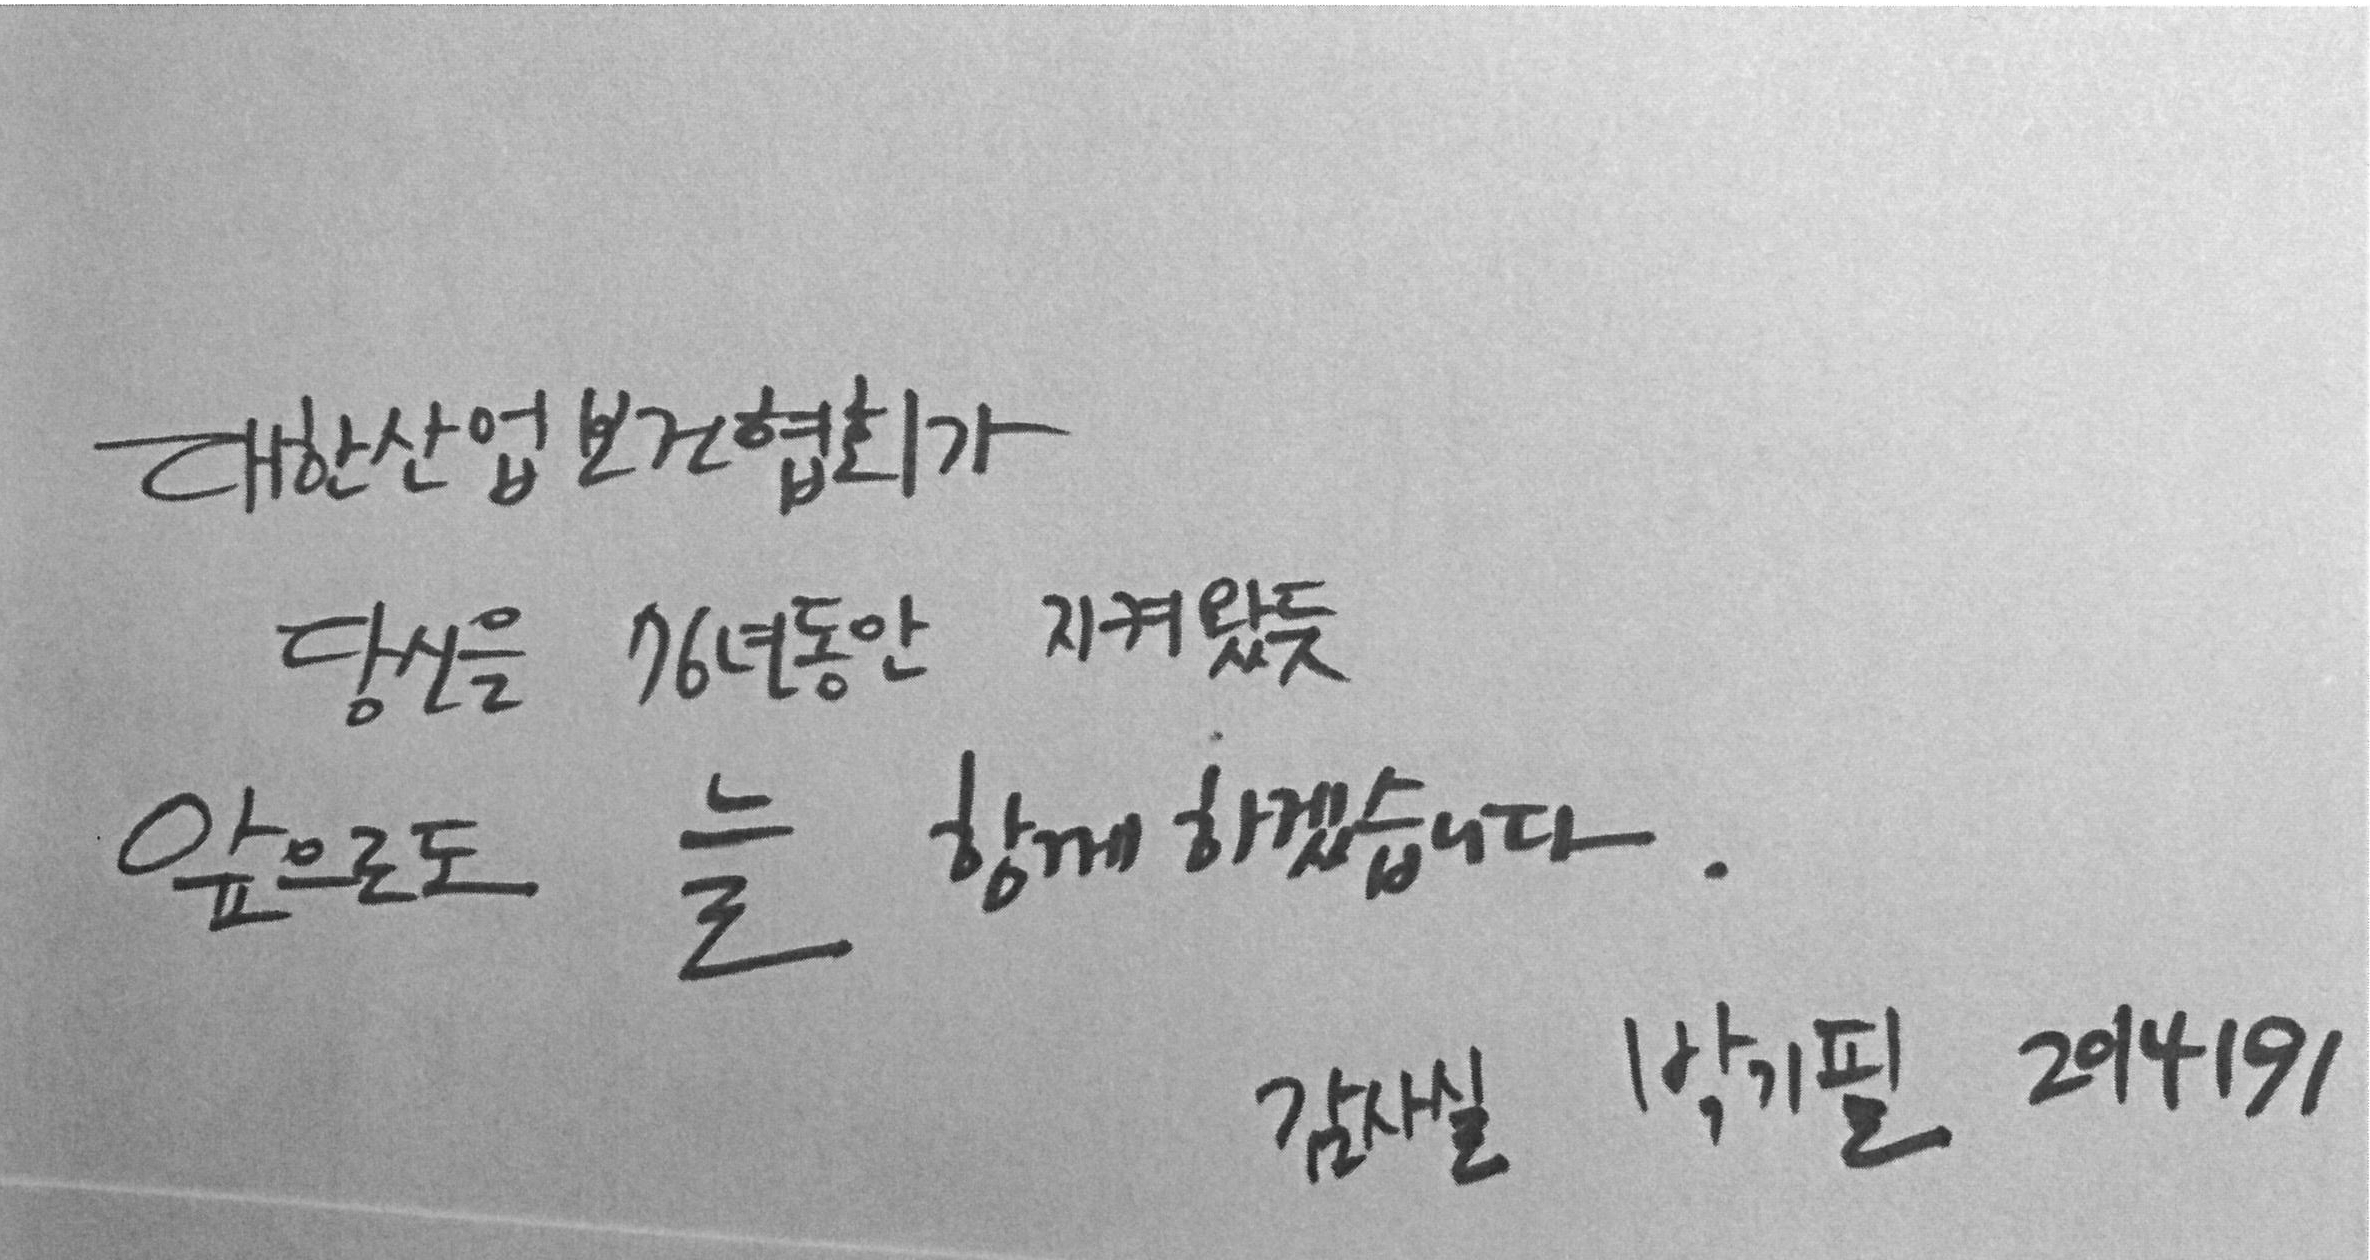 대한산업보건협회가
당신을 76년동안 지켜왔듯
앞으로도 늘 함께 하겠습니다.
감사실 박기필 2014191